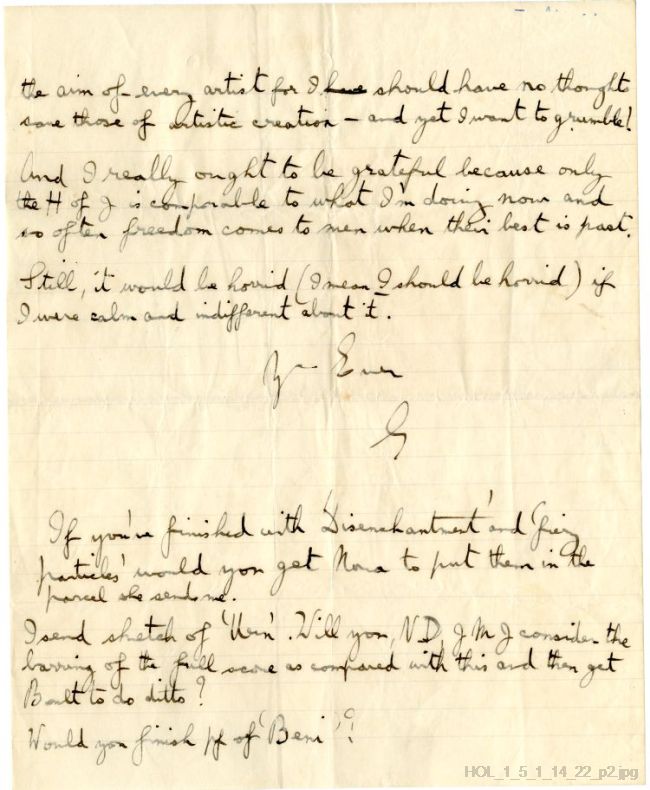 the aim of every artist for I have should have no thought
save those of artistic creation – and yet I want to grumble!
And I really ought to be grateful because only
the H of J is comparable to what I'm doing now and
so often freedom comes to men when their best is past.
Still, it would be horrid (I mean I should be horrid) if
I were calm and indifferent about it.
Yrs Ever
G
If you've finished with 'Disenchantment' and 'fiery
particles' would you get Nora to put them in the
parcel she sends me.
I send sketch of 'Urn'. Will you, ND, JMJ consider the
barring of the full score as compared with this and then get
Boult to do ditto?
Would you finish pf of 'Beni'?
HOL_1_5_1_14_22_p2.jpg